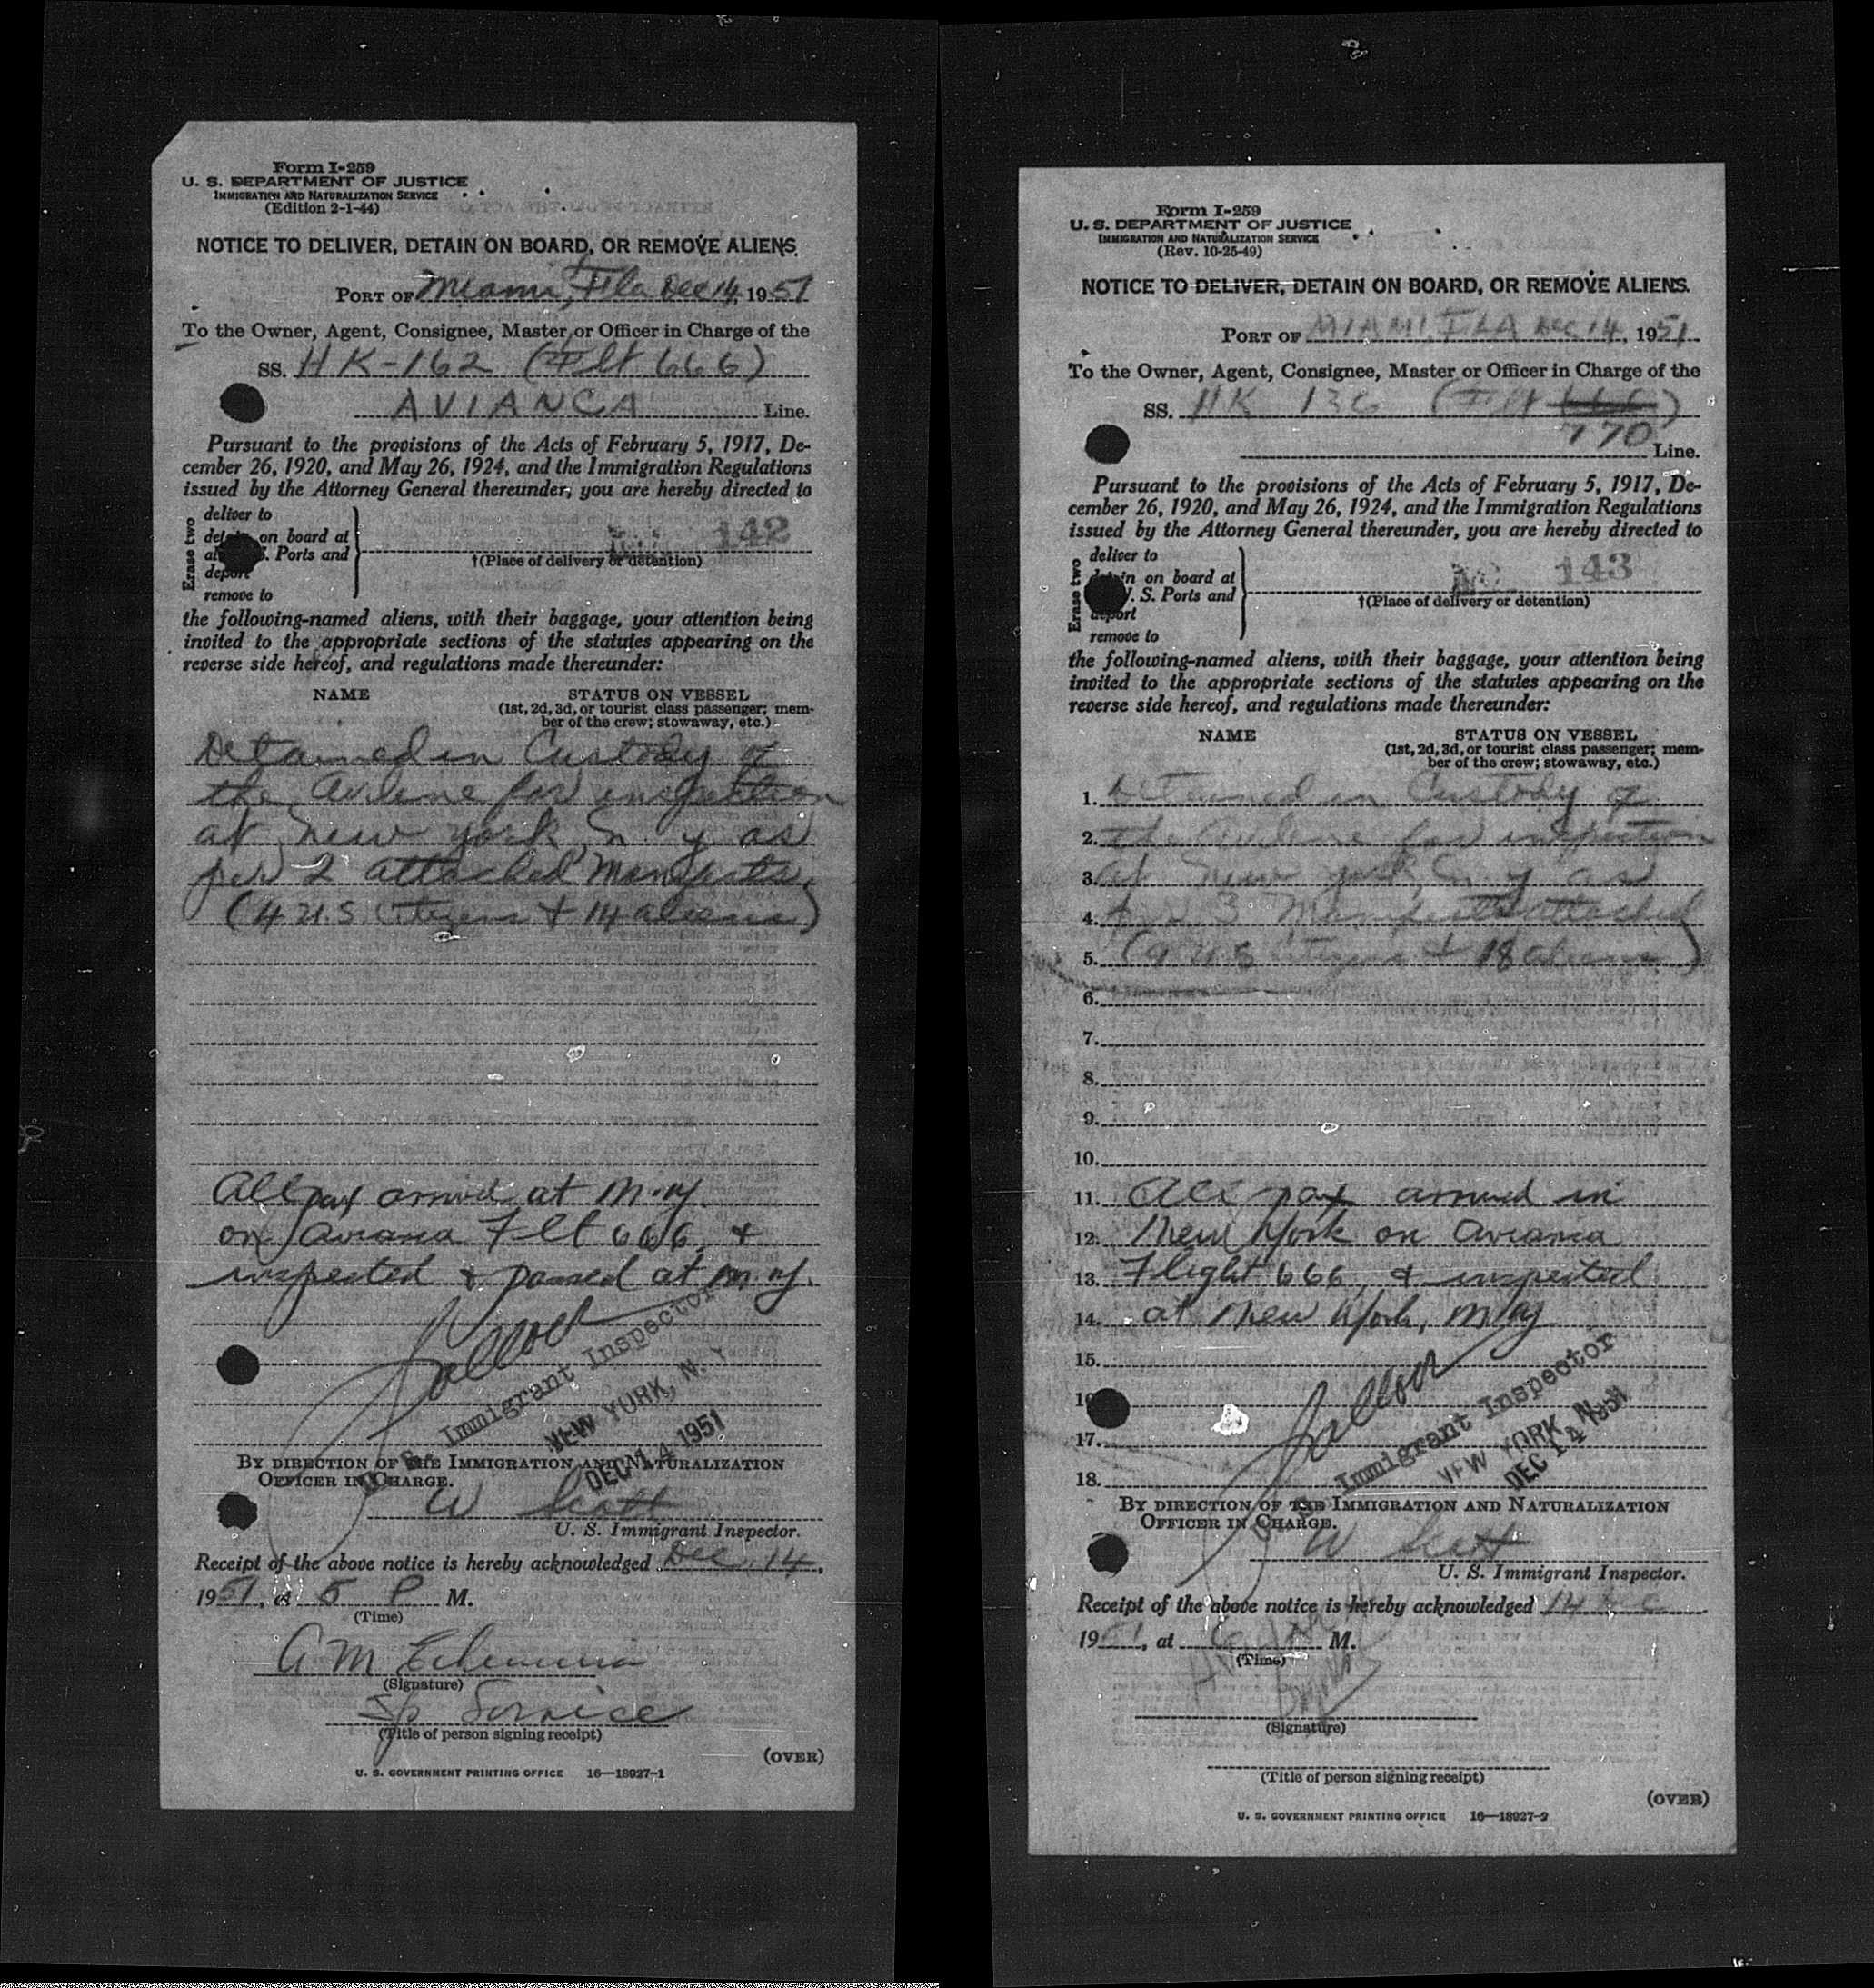 Form I-259
U. S. DEPARTMENT OF JUSTICE
IMMIGRATION AND NATURALIZATION SERVICE
(Edition 2-1-44)
NOTICE TO DELIVER, DETAIN ON BOARD, OR REMOVE ALIENS.
PORT OF Miami, Fla Dec 14, 1951
To the Owner, Agent, Consignee, Master or Officer in Charge of the
SS. HK-162 (Flt 666)
AVIANCA Line.
Pursuant to the provisions of the Acts of February 5, 1917, De-
cember 26, 1920, and May 26, 1924, and the Immigration Regulations
issued by the Attorney General thereunder, you are hereby directed to
Erase two
deliver to
on board at
Ports and
deport
remove to
142
†(Place of delivery or detention)
the following-named aliens, with their baggage, your attention being
invited to the appropriate sections of the statutes appearing on the
reverse side hereof, and regulations made thereunder:
NAME STATUS ON VESSEL
(1st, 2d, 3d, or tourist class passenger; mem-
ber of the crew; stowaway, etc.)
Detained in Custody of
the Airline for inspection
at New York, N. Y as
per 2 attached Manifests.
(4 U.S Citizens + 14 aliens)
All pax arrived at N.Y.
on Avianca Flt 666, +
inspected + passed at N.Y.
U. S. Immigrant Inspector
NEW YORK, N. Y
DEC 14 1951
BY DIRECTION OF THE IMMIGRATION AND NATURALIZATION
OFFICER IN CHARGE.
W Scott
U. S. Immigrant Inspector.
Receipt of the above notice is hereby acknowledged Dec. 14,
1951, at 5 P M.
(Time)
(Signature)
Service
(Title of person signing receipt)
(OVER)
U. S. GOVERNMENT PRINTING OFFICE 16—18927-1
Form I-259
U. S. DEPARTMENT OF JUSTICE
IMMIGRATION AND NATURALIZATION SERVICE
(Rev. 10-25-49)
NOTICE TO DELIVER, DETAIN ON BOARD, OR REMOVE ALIENS.
PORT OF MIAMI, FLA DEC 14, 1951
To the Owner, Agent, Consignee, Master or Officer in Charge of the
SS. HK 136 (Flt 666)
770 Line.
Pursuant to the provisions of the Acts of February 5, 1917, De-
cember 26, 1920, and May 26, 1924, and the Immigration Regulations
issued by the Attorney General thereunder, you are hereby directed to
Erase two
deliver to
on board at
S. Ports and
remove to
143
†(Place of delivery or detention)
the following-named aliens, with their baggage, your attention being
invited to the appropriate sections of the statutes appearing on the
reverse side hereof, and regulations made thereunder:
NAME STATUS ON VESSEL
(1st, 2d, 3d, or tourist class passenger; mem-
ber of the crew; stowaway, etc.)
1. Detained in Custody of
2. the Airline for inspection
3. at New York, N. Y as
4. per 3 Manifests attached
5. (9 U S Citizens + 18 aliens)
6.
7.
8.
9.
10.
11. All pax arrived in
12. New York on Avianca
13. Flight 666, & inspected
14. at New York, N.Y
15.
16
17.
18.
U. S. Immigrant Inspector
NEW YORK, N.
DEC 14 1951
BY DIRECTION OF THE IMMIGRATION AND NATURALIZATION
OFFICER IN CHARGE.
W Scott
U. S. Immigrant Inspector.
Receipt of the above notice is hereby acknowledged 14 Dec
1951, at M.
(Time)
(Signature)
(Title of person signing receipt)
(OVER)
U. S. GOVERNMENT PRINTING OFFICE 16—18927-2